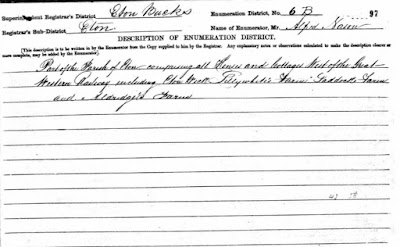 Superintendent Registrar's District Eton Bucks Enumeration District, No. 6 B 97
Registrar's Sub-District Eton Name of Enumerator, Mr. Alfred
DESCRIPTION OF ENUMERATION DISTRICT.
[This description is to be written in by the Enumerator from the Copy supplied to him by the Registrar. Any explanatory notes or observations calculated to make the description clearer or
more complete, may be added by the Enumerator.]
Part of the Parish of Eton comprising all Houses and Cottages West of the Great
Western Railway including Eton Wick Tillywhite's Farm Saddocks Farm
and Aldridge's Farm